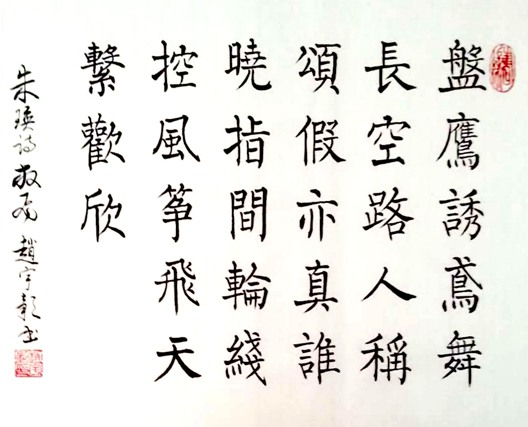 盤鷹誘鳶舞
長空路人稱
頌假亦真誰
曉指間輪綫
控風筝飛天
繫歡欣
朱瑛詩敬寫 趙宇彰書